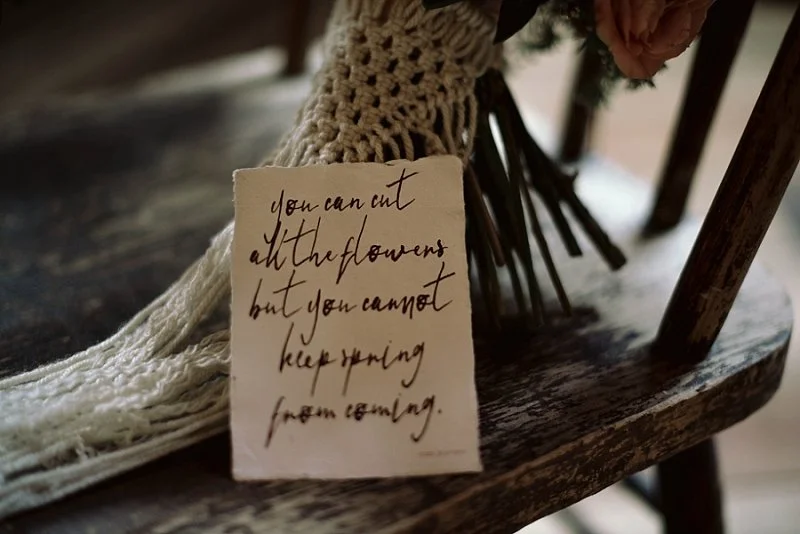 you can cut
all the flowers
but you cannot
keep spring
from coming.